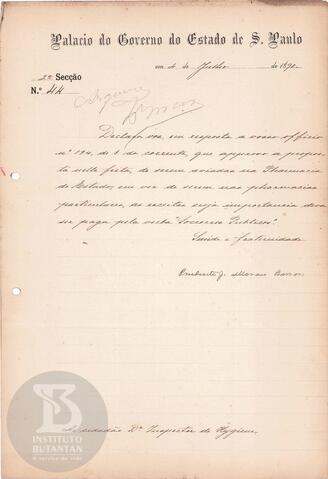 Palacio do Governo do Estado de S. Paulo
em 4 de Julho de 1892
2ª Secção
N.º 44
Declaro vos, em resposta a vosso officio
nº 194, de 1 do corrente, que approvo a propos
ta nelle feita, de serem aviadas na Pharmacia
do Estado, em vez de serem nas pharmacias
particulares, as receitas cuja importancia deva
ser paga pela verba "Soccorros Publicos".
Saúde e fraternidade
Cidadão Dr. Inspector de Hygiene
INSTITUTO
BUTANTAN
A serviço da vida